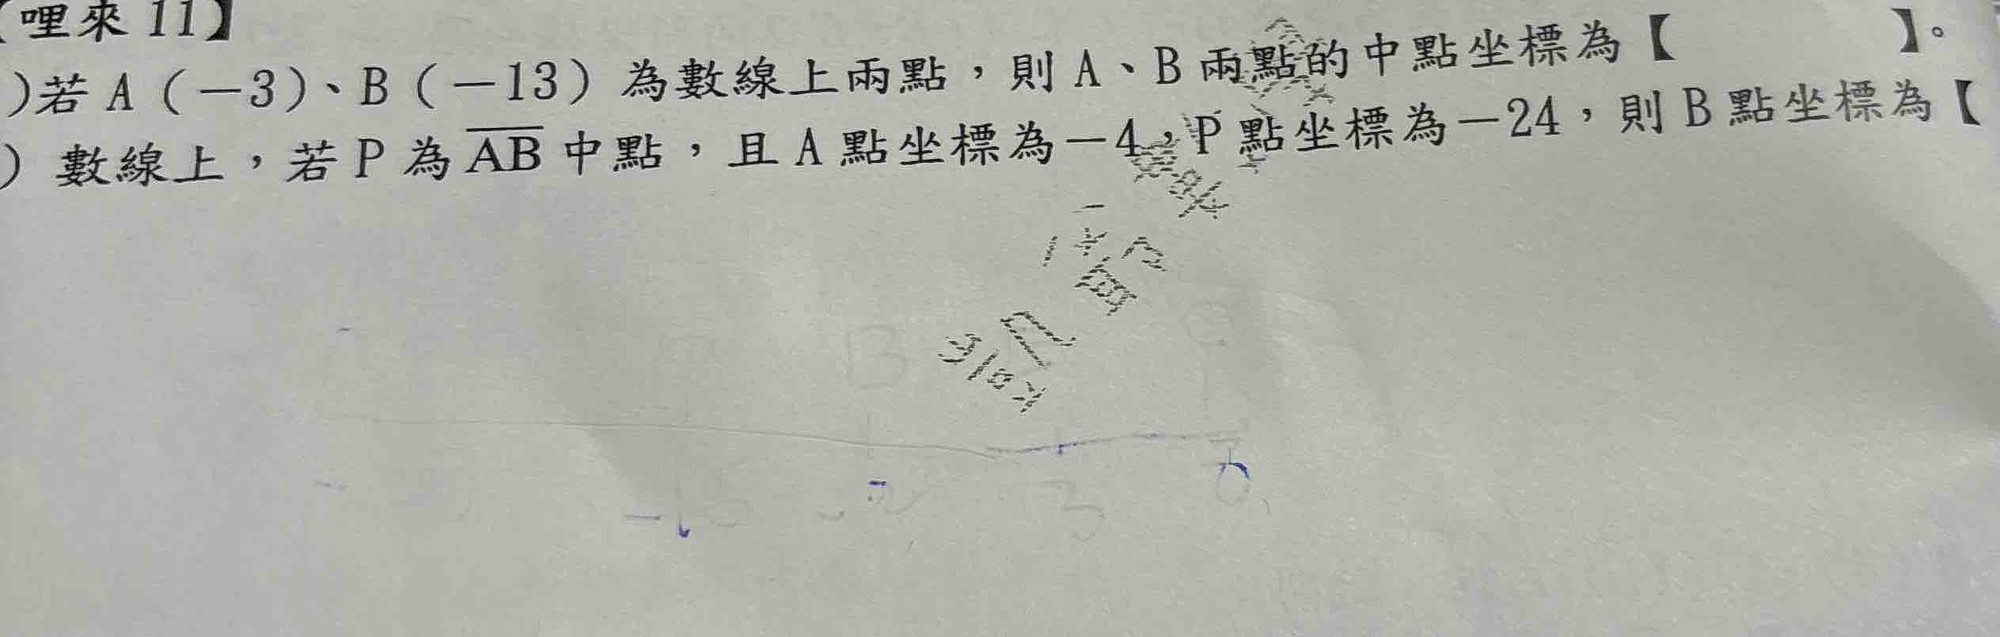 【哩來 11】
)若 A（－3）、B（－13）為數線上兩點，則 A、B 兩點的中點坐標為【 】。
）數線上，若 P 為 AB 中點，且 A 點坐標為－4，P 點坐標為－24，則 B 點坐標為【
B
-15
3
0